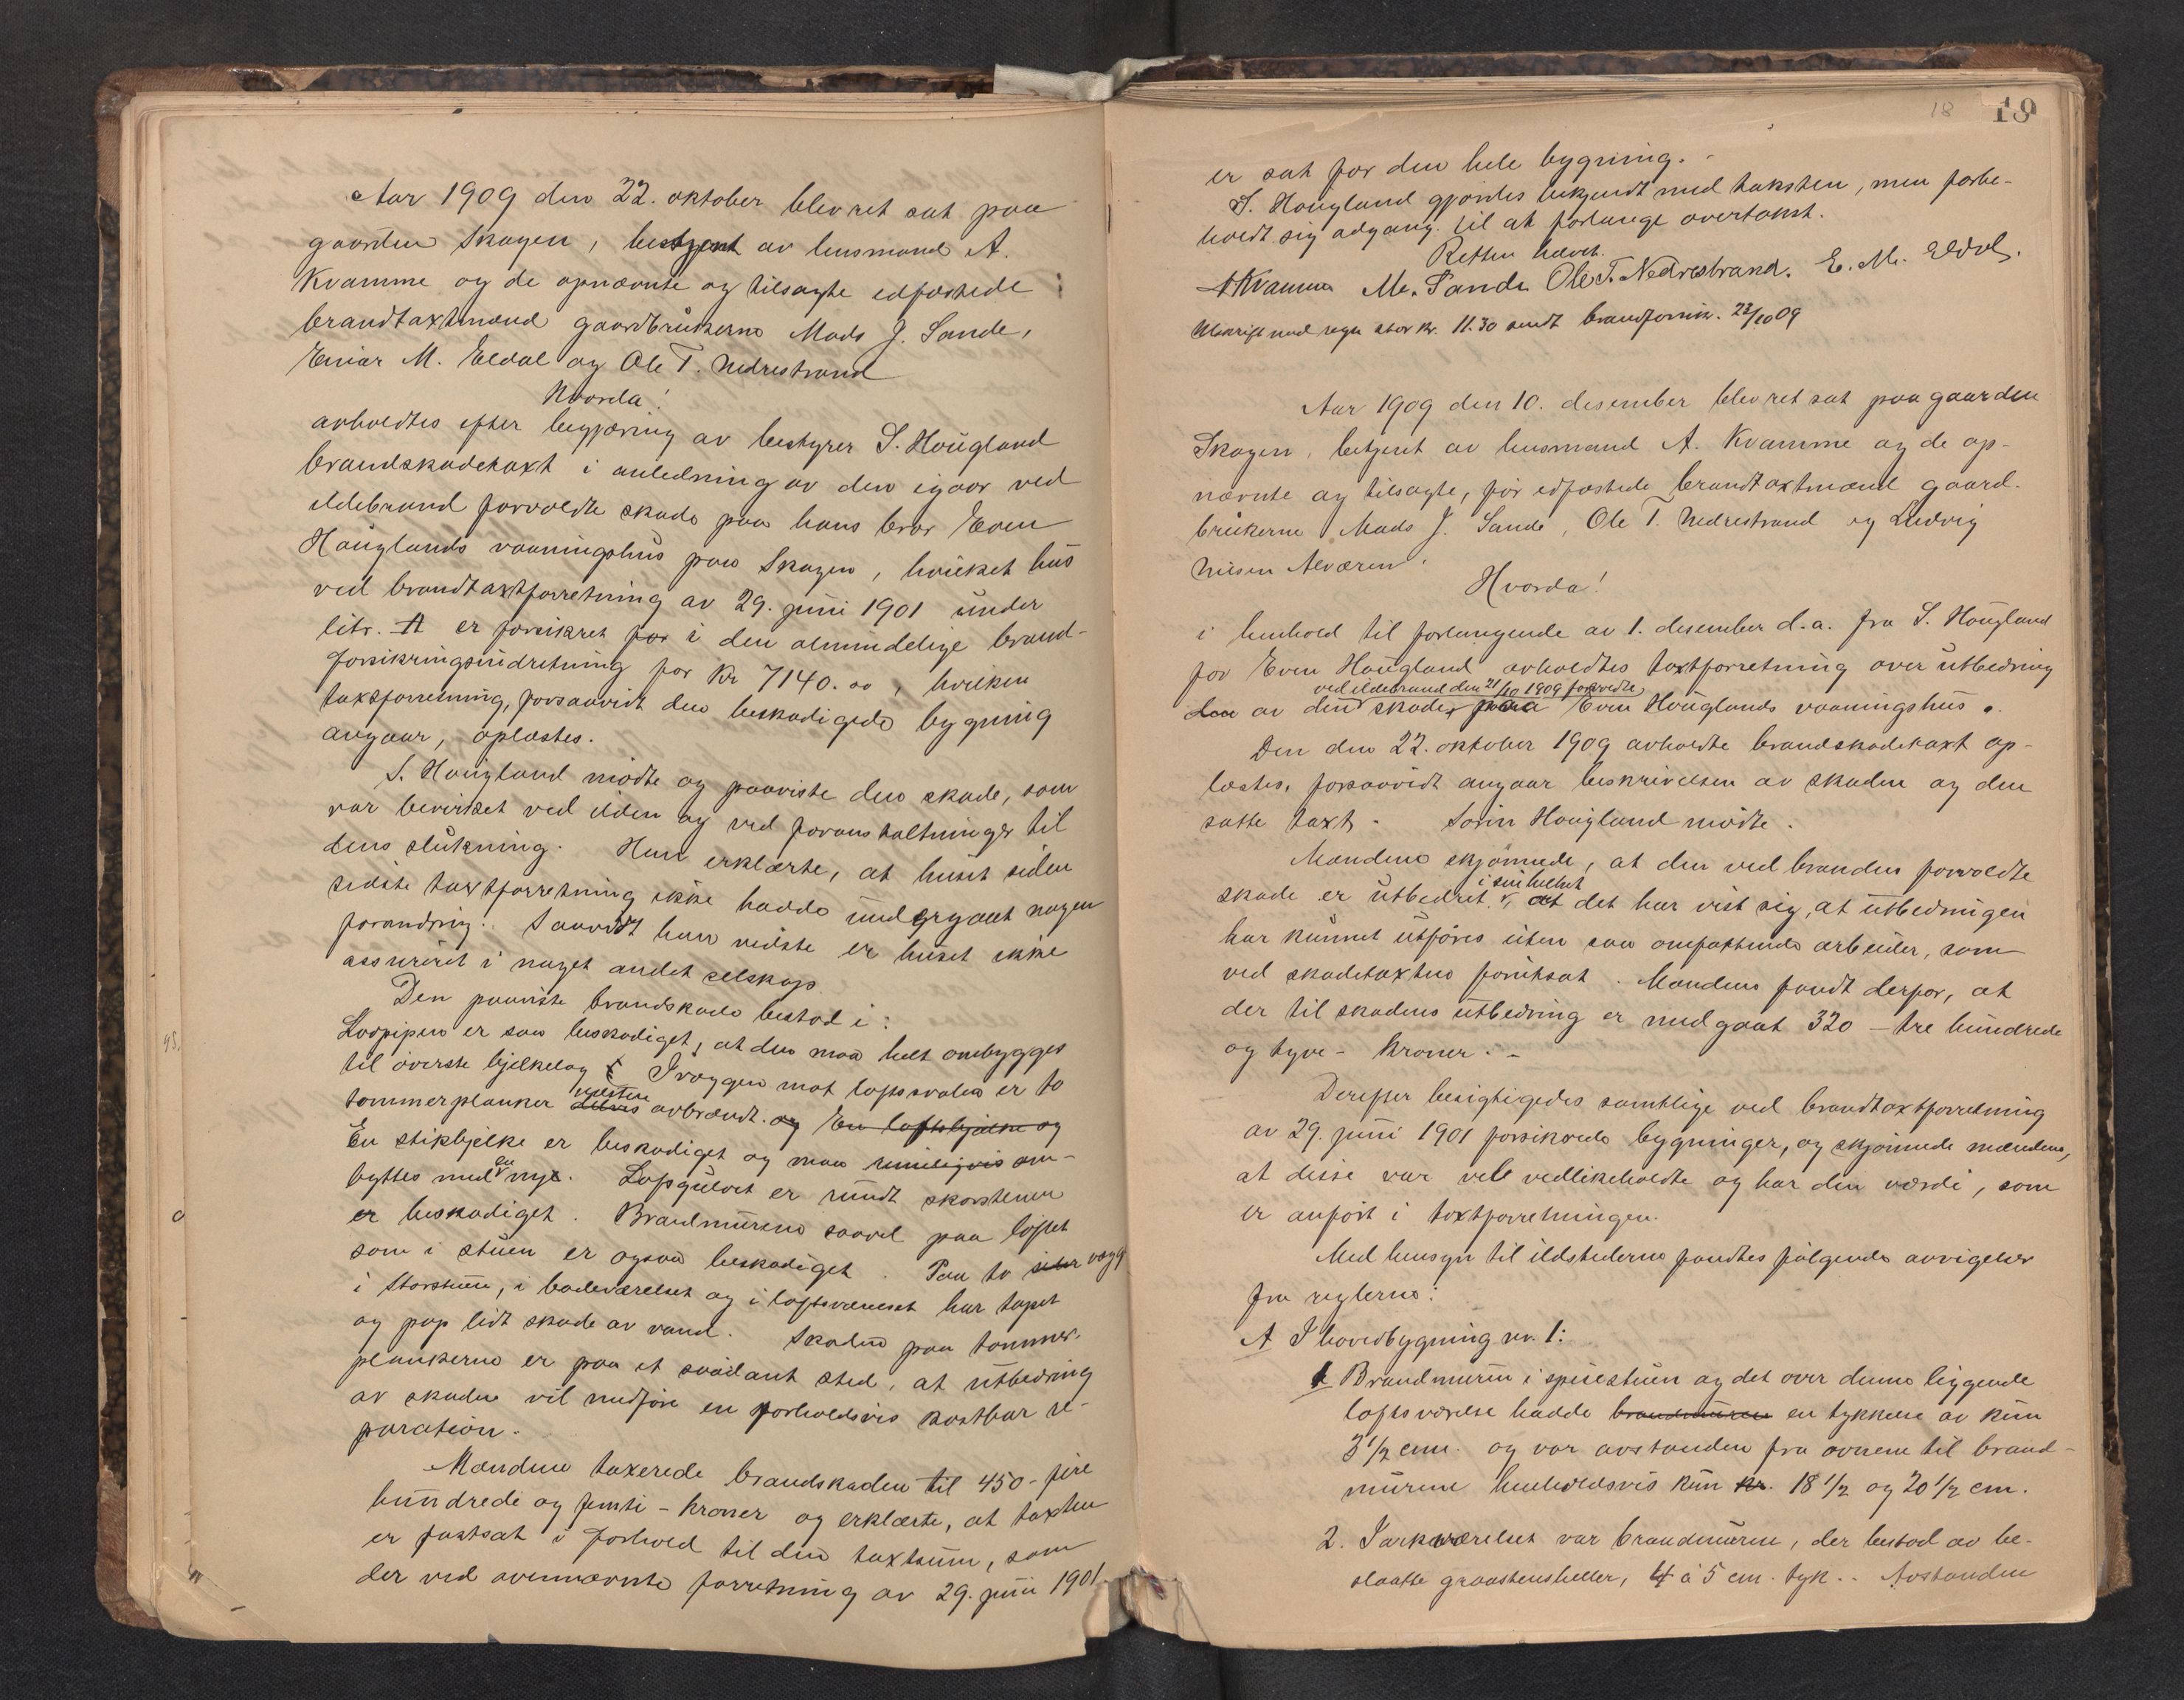 Aar 1909 den 22. oktober blev ret sat paa
gaarden Skagen, betjent av lensmand A.
Kvamme og de opnævnte og tilsagte edfæstede
brandtaxtmænd gaardbrukerne Mads J. Sande,
Einar M. Eldal og Ole T. Nedrestrand
Hvorda!
avholdtes efter begjæring av bestyrer S. Hougland
brandskadetaxt i anledning av den igaar ved
ildebrand forvoldte skade paa hans bror Even
Houglands vaaningshus paa Skagen, hvilket hus
ved brandtaxtforretning av 29. juni 1901 under
litr. A er forsikret for i den almindelige brand-
forsikringsindretning for Kr 7140.00, hvilken
taxtforretning, forsaavidt den beskadigede bygning
angaar, oplæstes.
S. Hougland mødte og paaviste den skade, som
var bevirket ved ilden og ved foranstaltninger til
dens slukning. Han erklærte, at huset siden
sidste taxtforretning ikke hadde undergaat nogen
forandring. Saavidt han vidste er huset ikke
assureret i noget andet selskap.
Den paaviste brandskade bestod i:
Lovpipen er saa beskadiget, at den maa helt ombygges
til øverste bjelkelag. I væggen mot loftsvalen er to
tømmerplanker delvis næsten avbrændt. og En loftsbjælke og
En stikbjelke er beskadiget og maa rimeligvis om-
byttes med en nye. Lofsgulvet er rundt skorstenen
er beskadiget. Brandmurene saavel paa loftet
som i stuen er ogsaa beskadiget. Paa to sider vægg
i Storstuen, i badeværelset og i loftsværelset har tapet
og pap lidt skade av vand. Skaden paa tømmer-
plankerne er paa et saadant sted, at utbedring
av skaden vil medføre en forholdsvis kostbar re-
paration.
Mændene taxerede brandskaden til 450 - fire
hundrede og femti - kroner og erklærte, at taxten
er fastsat i forhold til den taxtsum, som
der ved ovennævnte forretning av 29. juni 1901
18 19
er sat for den hele bygning. -
S. Hougland gjordes bekjendt med taksten, men forbe-
holdt sig adgang til at forlange overtakst.
Retten hævet.
A Kvamme M. Sande Ole T. Nedrestrand. E. M. Eldal.
Utskrift med regn. stor kr. 11.30 sendt brandforsik. 23/10 09
Aar 1909 den 10. desember blev ret sat paa gaarden
Skagen, betjent av lensmand A. Kvamme og de op-
nævnte og tilsagte, før edfæstede brandtaxtmænd gaard-
brukerne Mads J. Sande, Ole T. Nedrestrand og Ludvig
Nilsen Alværen.
Hvorda!
i henhold til forlangende av 1. desember d.a. fra S. Hougland
for Even Hougland avholdtes taxtforretning over utbedring
ved ildebrand den 21/10 1909 forvoldte
den av den skade, paa Even Houglands vaaningshus.
Den den 22. oktober 1909 avholdte brandskadetaxt op-
læstes, forsaavidt angaar beskrivelsen av skaden og den
satte taxt. - Søren Hougland mødte.
Mændene skjønnede, at den ved branden forvoldte
i sin helhet
skade er utbedret, at det har vist sig, at utbedringen
har kunnet utføres uten saa omfattende arbeider, som
ved skadetaxten forutsat. Mændene fandt derfor, at
der til skadens utbedring er medgaat 320 - tre hundrede
og tyve - kroner. -
Derefter besigtigedes samtlige ved brandtaxtforretning
av 29. juni 1901 forsikrede bygninger, og skjønnede mændene,
at disse var vele vedlikeholdte og har den værdi, som
er anført i taxtforretningen.
Med hensyn til ildstederne fandtes følgende avvigelser
fra reglerne:
A I hovedbygning nr. 1:
1 Brandmuren i spisestuen og det over denne liggende
loftsværelse hadde brandmuren en tykkelse av kun
3 1/2 cm. og var avstanden fra ovnene til brand-
murene henholdsvis kun kr. 18 1/2 og 20 1/2 cm.
2. I arkværelset var brandmuren, der bestod av be-
slaatte graastensheller, 4 à 5 cm. tyk. - Avstanden